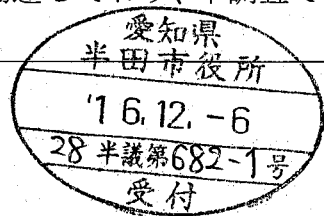 愛知県
半田市役所
'16.12.-6
28半議第682-1号
受付